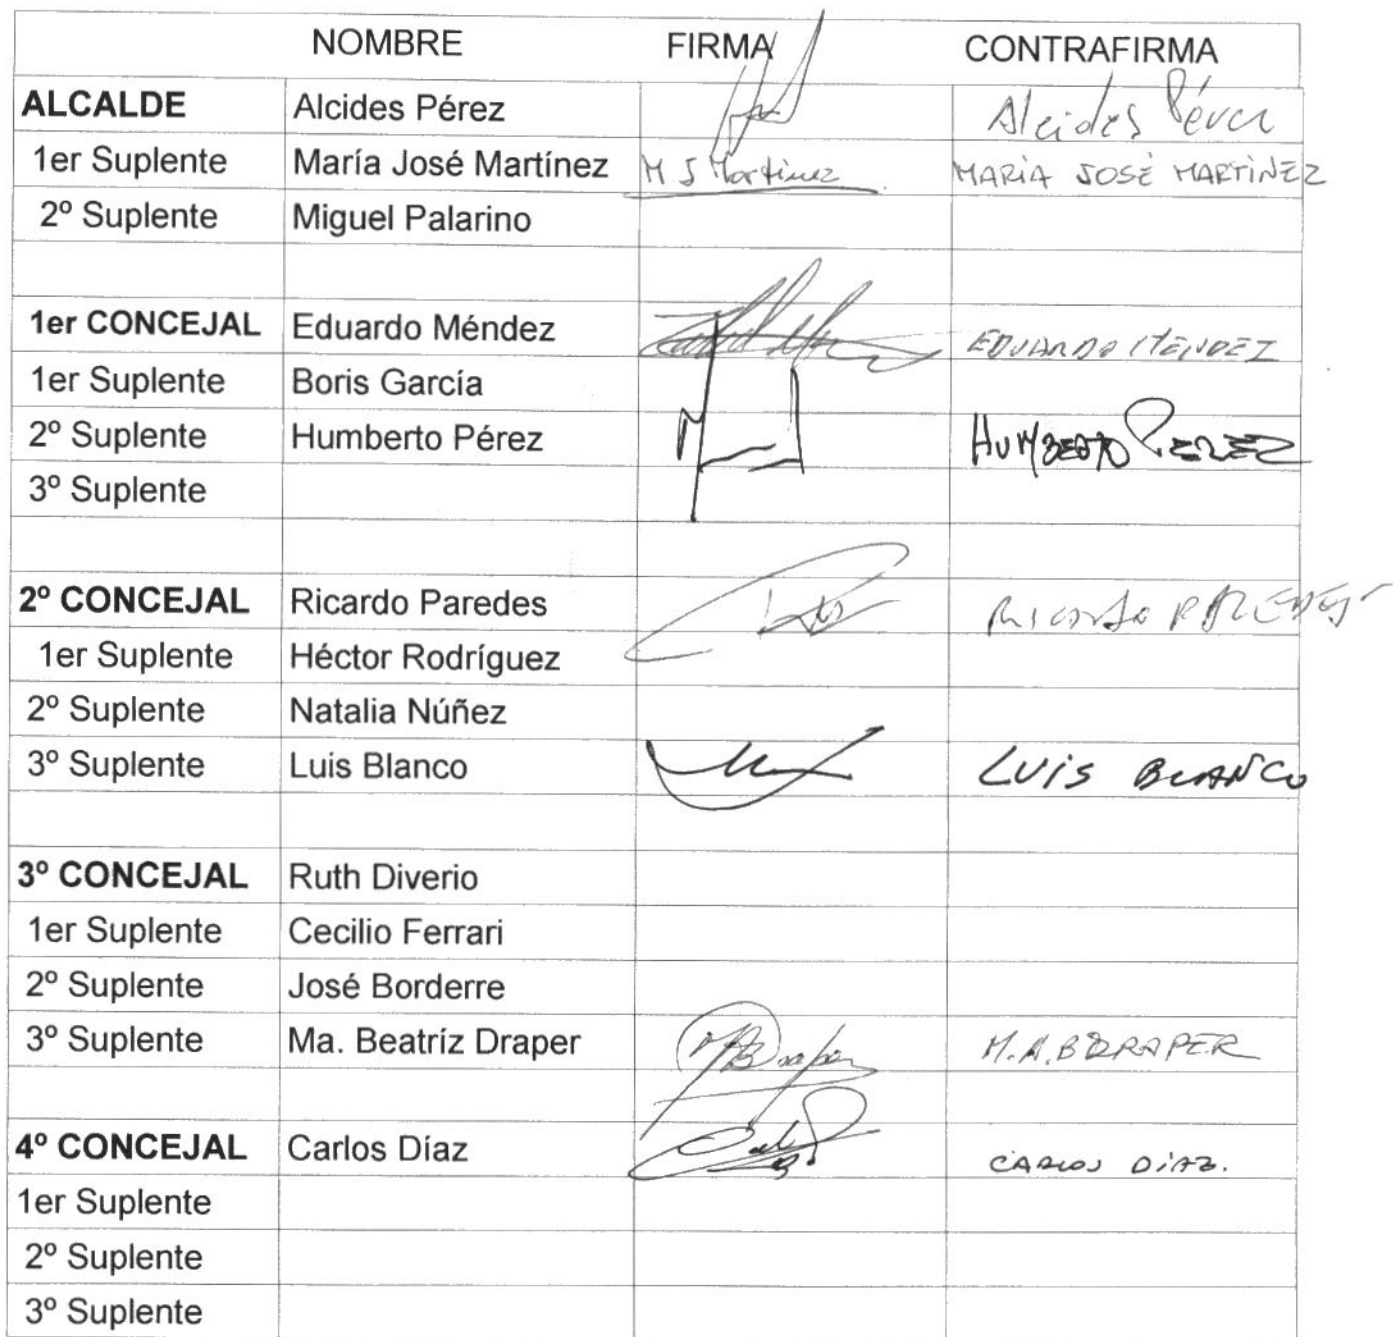 NOMBRE FIRMA CONTRAFIRMA
ALCALDE Alcides Pérez Alcides Pérez
1er Suplente María José Martínez M J Martinez MARIA JOSÉ MARTINEZ
2º Suplente Miguel Palarino
1er CONCEJAL Eduardo Méndez EDUARDO MENDEZ
1er Suplente Boris García
2º Suplente Humberto Pérez HUMBERTO PEREZ
3º Suplente
2º CONCEJAL Ricardo Paredes RICARDO PAREDES
1er Suplente Héctor Rodríguez
2º Suplente Natalia Núñez
3º Suplente Luis Blanco LUIS BLANCO
3º CONCEJAL Ruth Diverio
1er Suplente Cecilio Ferrari
2º Suplente José Borderre
3º Suplente Ma. Beatríz Draper MABDraper M.A.BDRAPER
4º CONCEJAL Carlos Díaz CARLOS DÍAZ.
1er Suplente
2º Suplente
3º Suplente